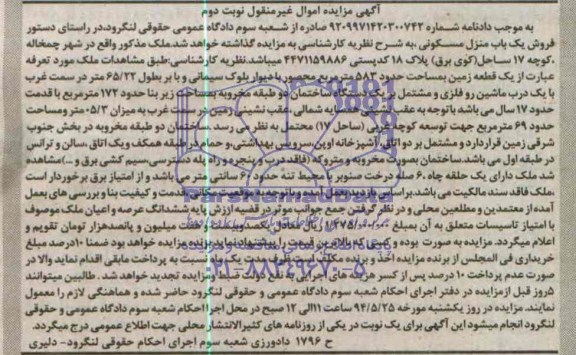 آگهی مزایده اموال غیرمنقول نوبت دوم
به موجب دادنامه شماره ۹۲۰۹۹۷۱۴۲۰۳۰۰۷۴۲ صادره از شعبه سوم دادگاه عمومی حقوقی لنگرود،در راستای دستور
فروش یک باب منزل مسکونی ،به شرح نظریه کارشناسی به مزایده گذاشته خواهد شد.ملک مذکور واقع در شهر چمخاله
،کوچه ۱۷ ساحل(کوی برق) پلاک ۱۸ کدپستی ۴۴۷۱۱۵۹۸۸۶ میباشد.نظریه کارشناسی:طبق مشاهدات ملک مورد تعرفه
عبارت از یک قطعه زمین بمساحت حدود ۵۸۳ مترمربع محصور با دیوار بلوک سیمانی و با بر بطول ۶۵/۲۲ متر در سمت غرب
با یک درب ماشین رو فلزی و مشتمل بر یک دستگاه ساختمان دو طبقه مخروبه بمساحت زیر بنا حدود ۱۷۲ مترمربع با قدمت
حدود ۱۷ سال می باشد باتوجه به عقب نشینی همسایه شمالی ،عقب نشینی زمین در سمت غرب به میزان ۰۵/۳ متر ومساحت
حدود ۶۹ مترمربع جهت توسعه کوچه غربی (ساحل ۱۷) محتمل به نظر می رسد .ساختمان دو طبقه مخروبه در بخش جنوب
شرقی زمین قراردارد و مشتمل بر دو اتاق، آشپزخانه اوپن،سرویس بهداشتی و حمام در طبقه همکف ویک اتاق ،سالن و تراس
در طبقه اول می باشد.ساختمان بصورت مخروبه و متروکه (فاقد درب و پنجره و راه پله دسترسی،سیم کشی برق و ..)مشاهده
شد ملک دارای یک حلقه چاه ،۶ اصله درخت صنوبر با محیط تنه حدود ۶۰ سانتی متر می باشد و از امتیاز برق برخوردار است
،ملک فاقد سند مالکیت می باشد.براساس بازدید بعمل آمده وباتوجه به موقعیت مکانی،قدمت و کیفیت بنا و بررسی های بعمل
آمده از معتمدین و مطلعین محلی و در نظر گرفتن جمع جوانب موثر در قضیه ارزش پایه ششدانگ عرصه و اعیان ملک موصوف
با امتیاز تاسیسات متعلقه به آن بمبلغ ریال معادل یکصدو هفت میلیون و پانصدهزار تومان تقویم و
اعلام میگردد. مزایده به صورت بوده و کسی که بالاترین قیمت را پیشنهاد نماید برنده مزایده خواهد بود ضمنا ۱۰درصد مبلغ
خریداری فی المجلس از برنده مزایده اخذ و برنده مکلف است ظرف مدت یک ماه نسبت به پرداخت مابقی اقدام نماید والا در
صورت عدم پرداخت ۱۰ درصد پس از کسر هزینه های اجرایی به نفع دولت ضبط ومزایده تجدید خواهد شد . طالبین میتوانند
۵روز قبل ازمزایده در دفتر اجرای احکام شعبه سوم دادگاه عمومی و حقوقی لنگرود حاضر شده و هماهنگی لازم را معمول
نمایند. مزایده در روز یکشنبه مورخه ۹۴/۵/۲۵ ساعت ۱۱الی ۱۲ صبح در محل اجرا احکام شعبه سوم دادگاه عمومی و حقوقی
لنگرود انجام میشود این آگهی برای یک نوبت در یکی از روزنامه های کثیرالانتشار محلی جهت اطلاع عمومی درج میگردد.
ح ۱۷۹۶ دادورزی شعبه سوم اجرای احکام حقوقی لنگرود- دلیری
ParsNamadData
۰۲۱-۸۸۳۴۹۶۷۰-۵